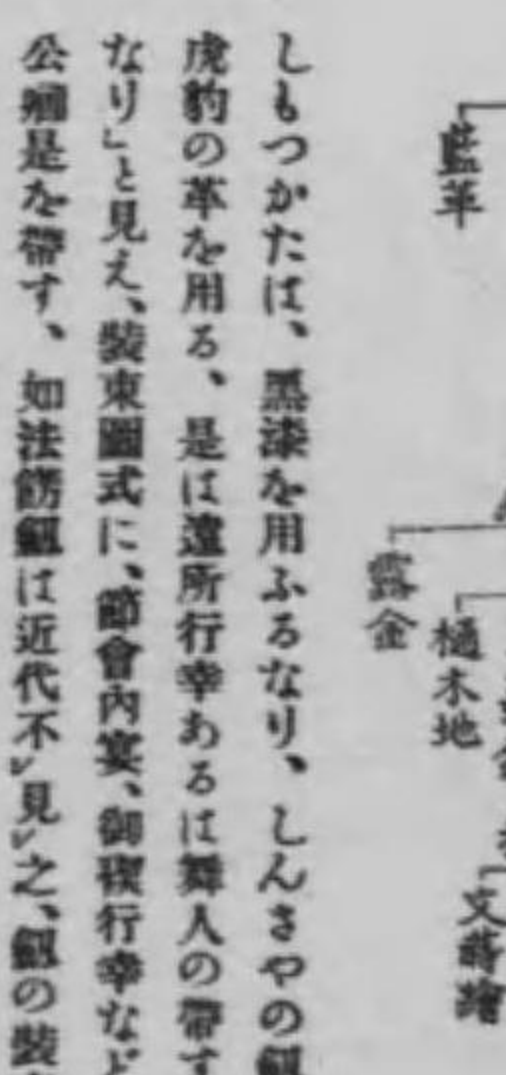 藍革
露金
樋木地
文蒔繪
しもつかたは、黒漆を用ふるなり、しんさやの劒
虎豹の革を用る、是は遠所行幸あるは舞人の帶す
なり」と見え、裝束圖式に、節會內宴、御禊行幸など
公卿是を帶す、如法餝劒は近代不レ見レ之、劒の裝